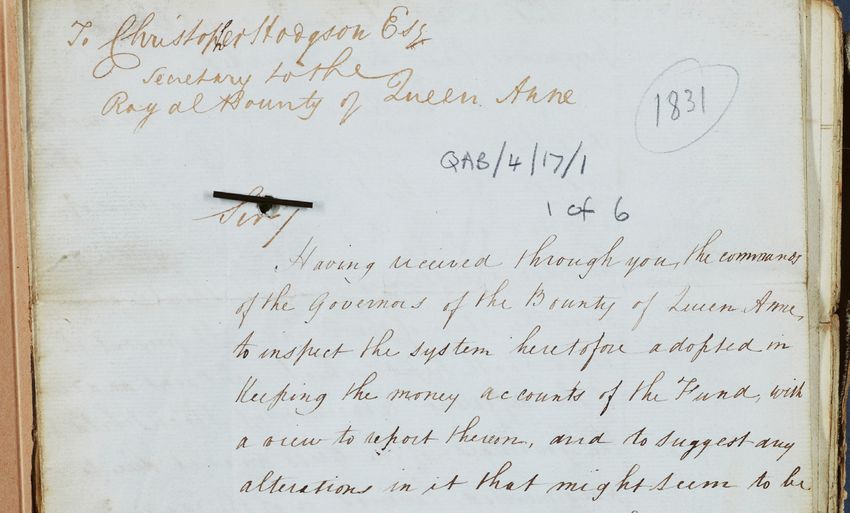 To Christopher Hodgson Esq
Secretary to the
Royal Bounty of Queen Anne
1831
QAB/4/17/1
1 of 6
Sir,
Having received through you, the commands
of the Governors of the Bounty of Queen Anne,
to inspect the system heretofore adopted in
keeping the money accounts of the Fund, with
a view to report thereon, and to suggest any
alterations in it that might seem to be